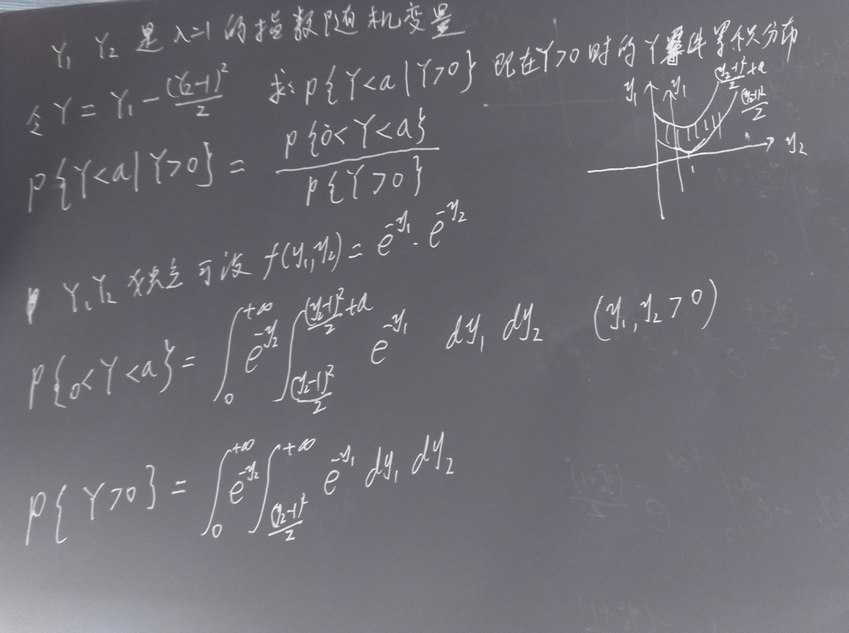 Y₁ Y₂ 是 λ=1 的指数随机变量
令 Y = Y₁ - (Y₂-1)²/2 求: P{Y<a|Y>0} 即在Y>0时的Y条件累积分布
P{Y<a|Y>0} = P{0<Y<a} / P{Y>0}
y₁ y₁ (y₂-1)²/2 + a
(y₂-1)²/2
1 y₂
Y₁Y₂ 独立 可设 f(y₁,y₂) = e^{-y₁} · e^{-y₂}
P{0<Y<a} = ∫₀^{+∞} e^{-y₂} ∫_{(y₂-1)²/2}^{(y₂-1)²/2 + a} e^{-y₁} dy₁ dy₂ (y₁, y₂ > 0)
P{Y>0} = ∫₀^{+∞} e^{-y₂} ∫_{(y₂-1)²/2}^{+∞} e^{-y₁} dy₁ dy₂